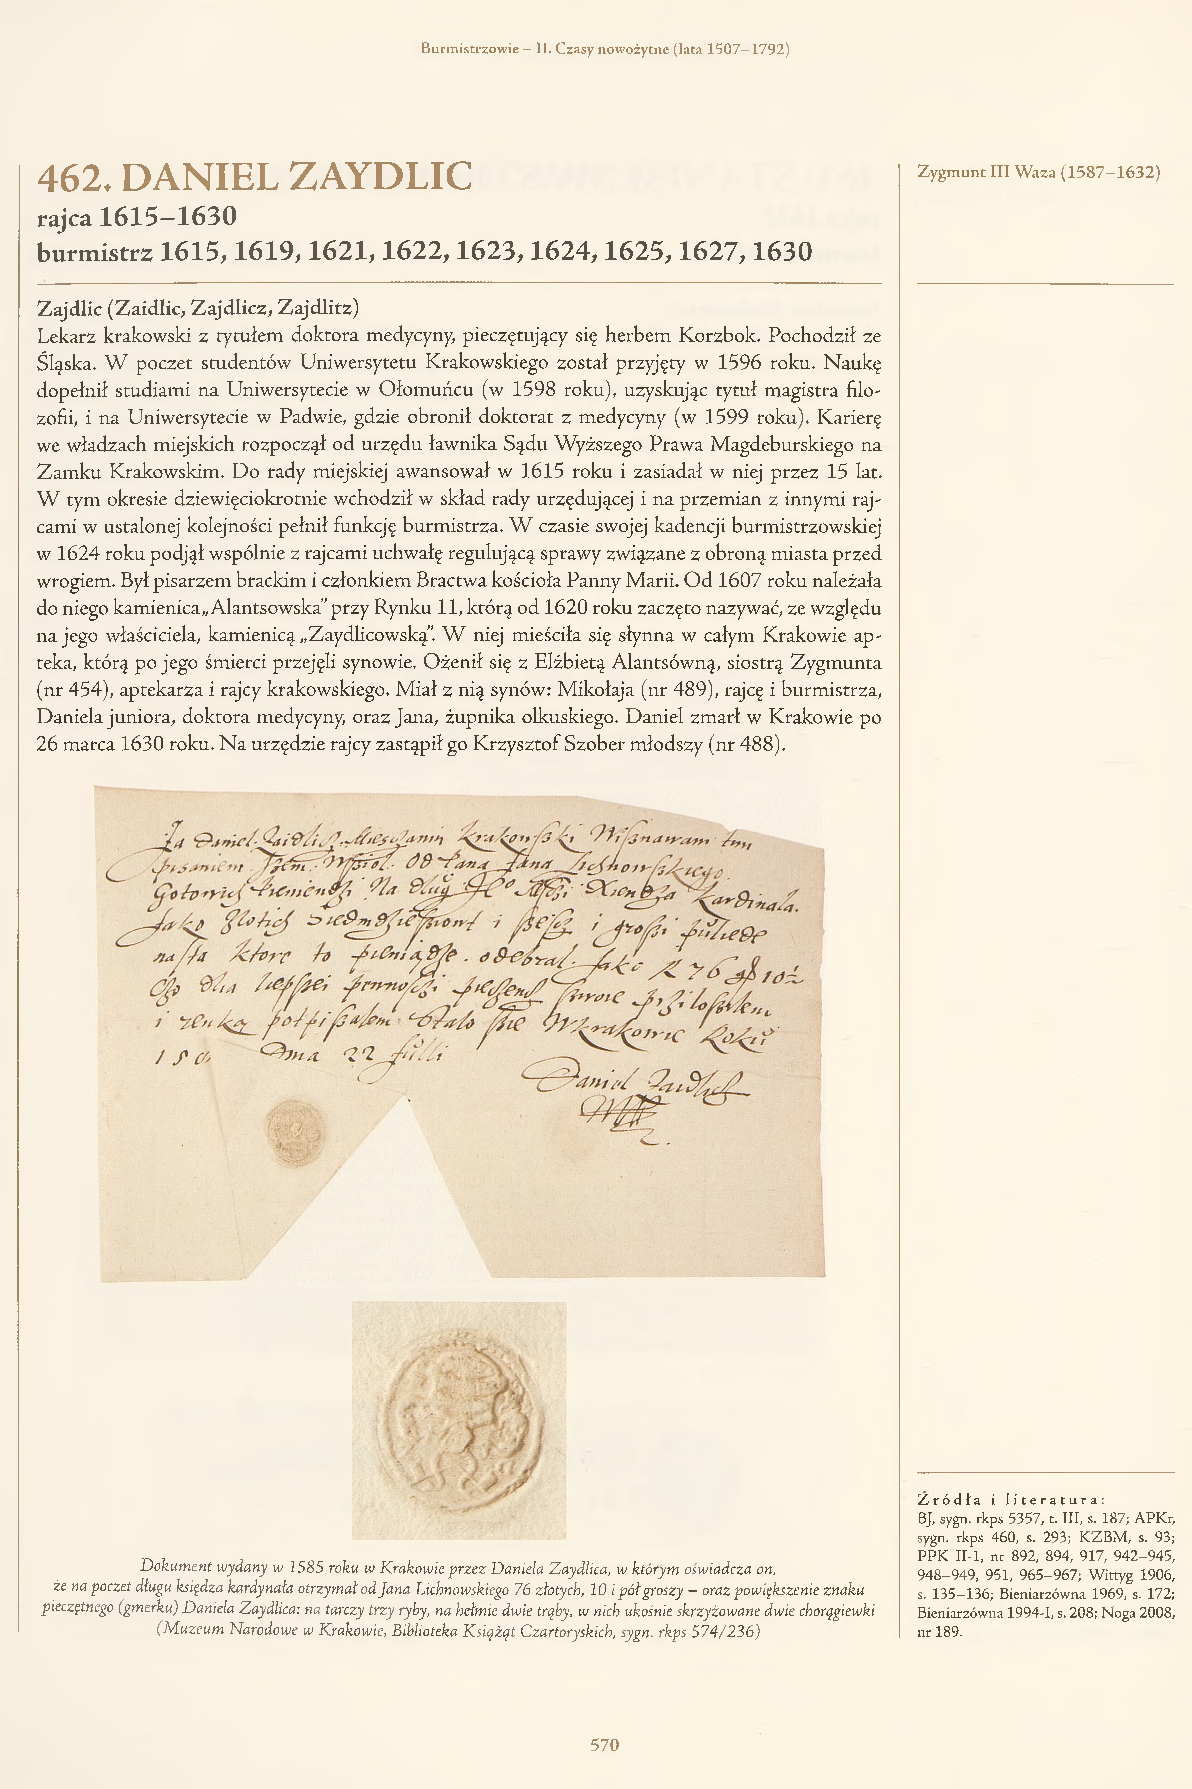 Burmistrzowie – II. Czasy nowożytne (lata 1507–1792)
462. DANIEL ZAYDLIC
rajca 1615–1630
burmistrz 1615, 1619, 1621, 1622, 1623, 1624, 1625, 1627, 1630
Zygmunt III Waza (1587–1632)
Zajdlic (Zaidlic, Zajdlicz, Zajdlitz)
Lekarz krakowski z tytułem doktora medycyny, pieczętujący się herbem Korzbok. Pochodził ze
Śląska. W poczet studentów Uniwersytetu Krakowskiego został przyjęty w 1596 roku. Naukę
dopełnił studiami na Uniwersytecie w Ołomuńcu (w 1598 roku), uzyskując tytuł magistra filo-
zofii, i na Uniwersytecie w Padwie, gdzie obronił doktorat z medycyny (w 1599 roku). Karierę
we władzach miejskich rozpoczął od urzędu ławnika Sądu Wyższego Prawa Magdeburskiego na
Zamku Krakowskim. Do rady miejskiej awansował w 1615 roku i zasiadał w niej przez 15 lat.
W tym okresie dziewięciokrotnie wchodził w skład rady urzędującej i na przemian z innymi raj-
cami w ustalonej kolejności pełnił funkcję burmistrza. W czasie swojej kadencji burmistrzowskiej
w 1624 roku podjął wspólnie z rajcami uchwałę regulującą sprawy związane z obroną miasta przed
wrogiem. Był pisarzem brackim i członkiem Bractwa kościoła Panny Marii. Od 1607 roku należała
do niego kamienica „Alantsowska” przy Rynku 11, którą od 1620 roku zaczęto nazywać, ze względu
na jego właściciela, kamienicą „Zaydlicowską”. W niej mieściła się słynna w całym Krakowie ap-
teka, którą po jego śmierci przejęli synowie. Ożenił się z Elżbietą Alantsówną, siostrą Zygmunta
(nr 454), aptekarza i rajcy krakowskiego. Miał z nią synów: Mikołaja (nr 489), rajcę i burmistrza,
Daniela juniora, doktora medycyny, oraz Jana, żupnika olkuskiego. Daniel zmarł w Krakowie po
26 marca 1630 roku. Na urzędzie rajcy zastąpił go Krzysztof Szober młodszy (nr 488).
Ja Daniel Zaidlicz Miesczanin Krakowski
pisaniem
Na dlug Xiendza Kardinala
Jako Zlotich i i
ktore to odebral Jako 76 10
dlia
i
22 Julli
Daniel Zaidlich
Dokument wydany w 1585 roku w Krakowie przez Daniela Zaydlica, w którym oświadcza on,
że na poczet długu księdza kardynała otrzymał od Jana Lichnowskiego 76 złotych, 10 i pół groszy – oraz powiększenie znaku
pieczętnego (gmerku) Daniela Zaydlica: na tarczy trzy ryby, na hełmie dwie trąby, w nich ukośnie skrzyżowane dwie chorągiewki
(Muzeum Narodowe w Krakowie, Biblioteka Książąt Czartoryskich, sygn. rkps 574/236)
Źródła i literatura:
BJ, sygn. rkps 5357, t. III, s. 187; APKr,
sygn. rkps 460, s. 293; KZBM, s. 93;
PPK II-1, nr 892, 894, 917, 942–945,
948–949, 951, 965–967; Wittyg 1906,
s. 135–136; Bieniarzówna 1969, s. 172;
Bieniarzówna 1994-I, s. 208; Noga 2008,
nr 189.
570